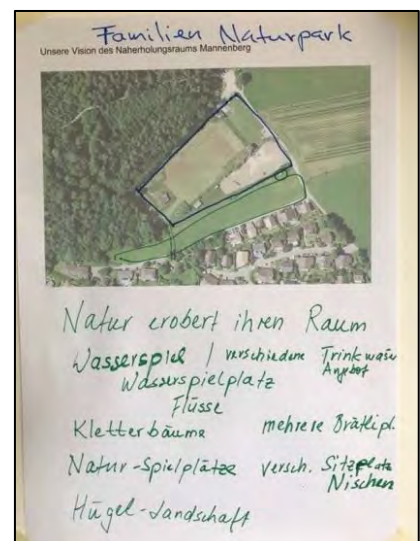 Familien Naturpark
Unsere Vision des Naherholungsraums Mannenberg
Natur erobert ihren Raum
Wasserspiel / verschiedene Trinkwasser Angebot
Wasserspielplatz
Flüsse
Kletterbäume mehrere Brätlipl.
Natur-Spielplätze versch. Sitzplatz
Nischen
Hügel-Landschaft